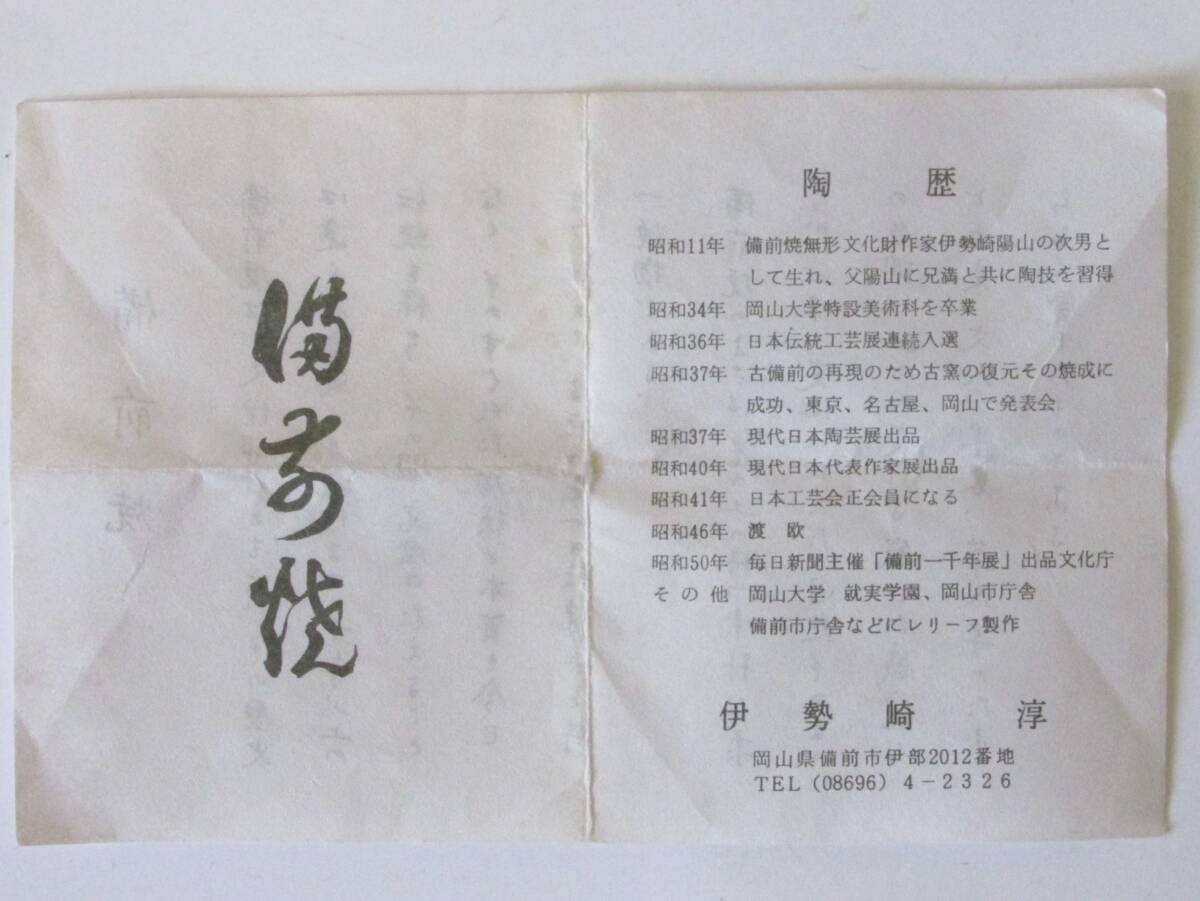 備前焼
陶歴
昭和11年 備前焼無形文化財作家伊勢崎陽山の次男と
して生れ、父陽山に兄満と共に陶技を習得
昭和34年 岡山大学特設美術科を卒業
昭和36年 日本伝統工芸展連続入選
昭和37年 古備前の再現のため古窯の復元その焼成に
成功、東京、名古屋、岡山で発表会
昭和37年 現代日本陶芸展出品
昭和40年 現代日本代表作家展出品
昭和41年 日本工芸会正会員になる
昭和46年 渡欧
昭和50年 毎日新聞主催「備前一千年展」出品文化庁
その他 岡山大学 就実学園、岡山市庁舎
備前市庁舎などにレリーフ製作
伊勢崎 淳
岡山県備前市伊部2012番地
TEL (08696) 4-2326